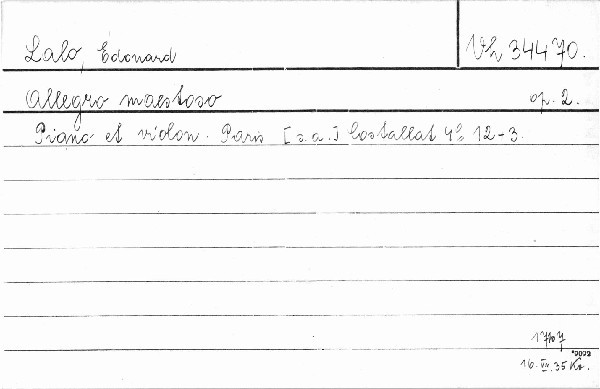 Lalo, Edouard
Vh 34470.
Allegro maestoso op. 2.
Piano et violon. Paris [s.a.] Costallat 4° 12-3.
16. VII. 35 Kr.